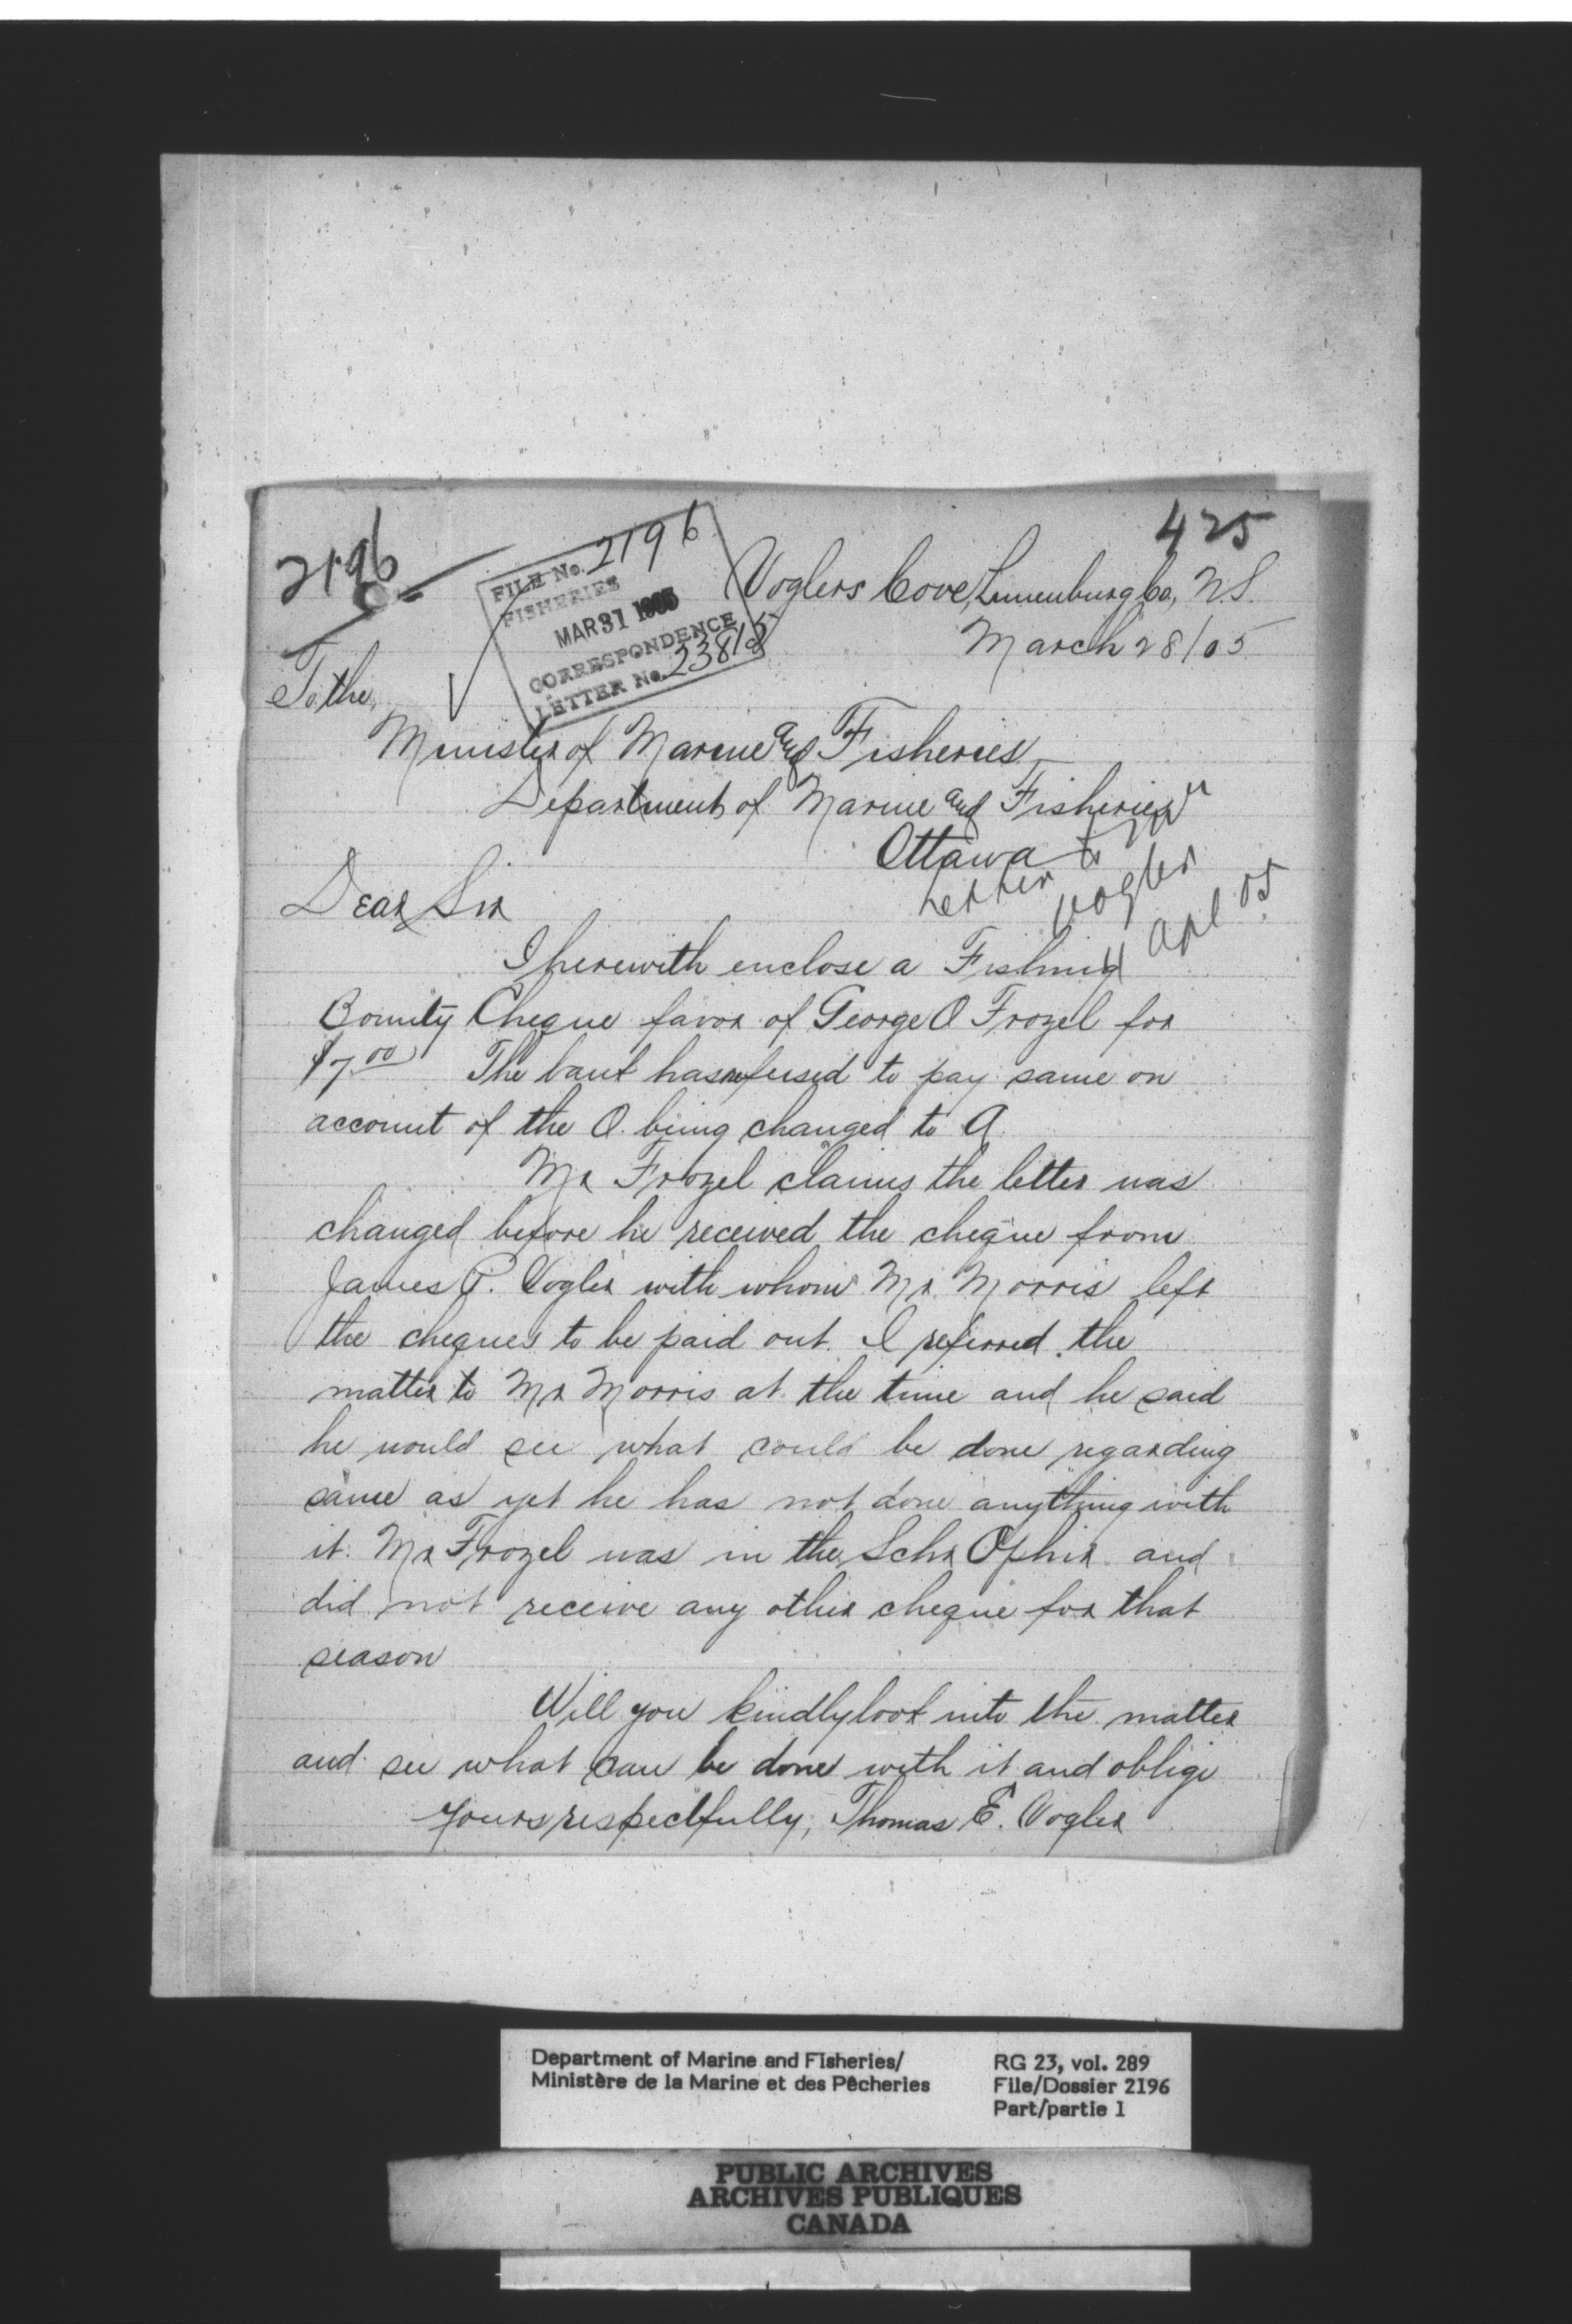 2196
425
FILE No. 2196
FISHERIES
MAR 31 1905
CORRESPONDENCE
LETTER No. 23815
Voglers Cove, Lunenburg Co, N S.
March 28/05
To the,
Minister of Marine and Fisheries
Department of Marine and Fisheries
Ottawa
Letter to
Vogler
4 Apl 05
Dear Sir
I herewith enclose a Fishing
Bounty Cheque favor of George O Frozel for
$7.00 The bank has refused to pay same on
account of the O. being changed to A.
Mr Frozel claims the letter was
changed before he received the cheque from
James P. Vogler with whom Mr. Morris left
the cheques to be paid out. I referred the
matter to Mr Morris at the time and he said
he would see what could be done regarding
same as yet he has not done anything with
it. Mr Frozel was in the Schr Ophir and
did not receive any other cheque for that
season
Will you kindly look into the matter
and see what can be done with it and oblige
Yours respectfully, Thomas E. Vogler
Department of Marine and Fisheries/
Ministère de la Marine et des Pêcheries
RG 23, vol. 289
File/Dossier 2196
Part/partie 1
PUBLIC ARCHIVES
ARCHIVES PUBLIQUES
CANADA